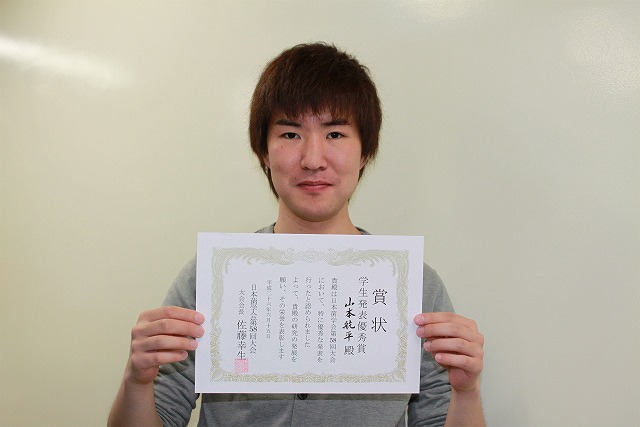 賞状
学生発表優秀賞
山本航平 殿
貴殿は日本菌学会第58回大会
において、特に優秀な発表を
行ったと認められました
よって、貴殿の研究の発展を
願い、その栄誉を表彰します
平成二十六年六月十五日
日本菌学会第58回大会
大会会長 佐藤幸生